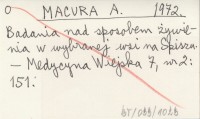 O MACURA A. 1972.
Badania nad sposobem żywie-
nia w wybranej wsi na Spiszu.
— Medycyna Wiejska 7, nr 2:
151.